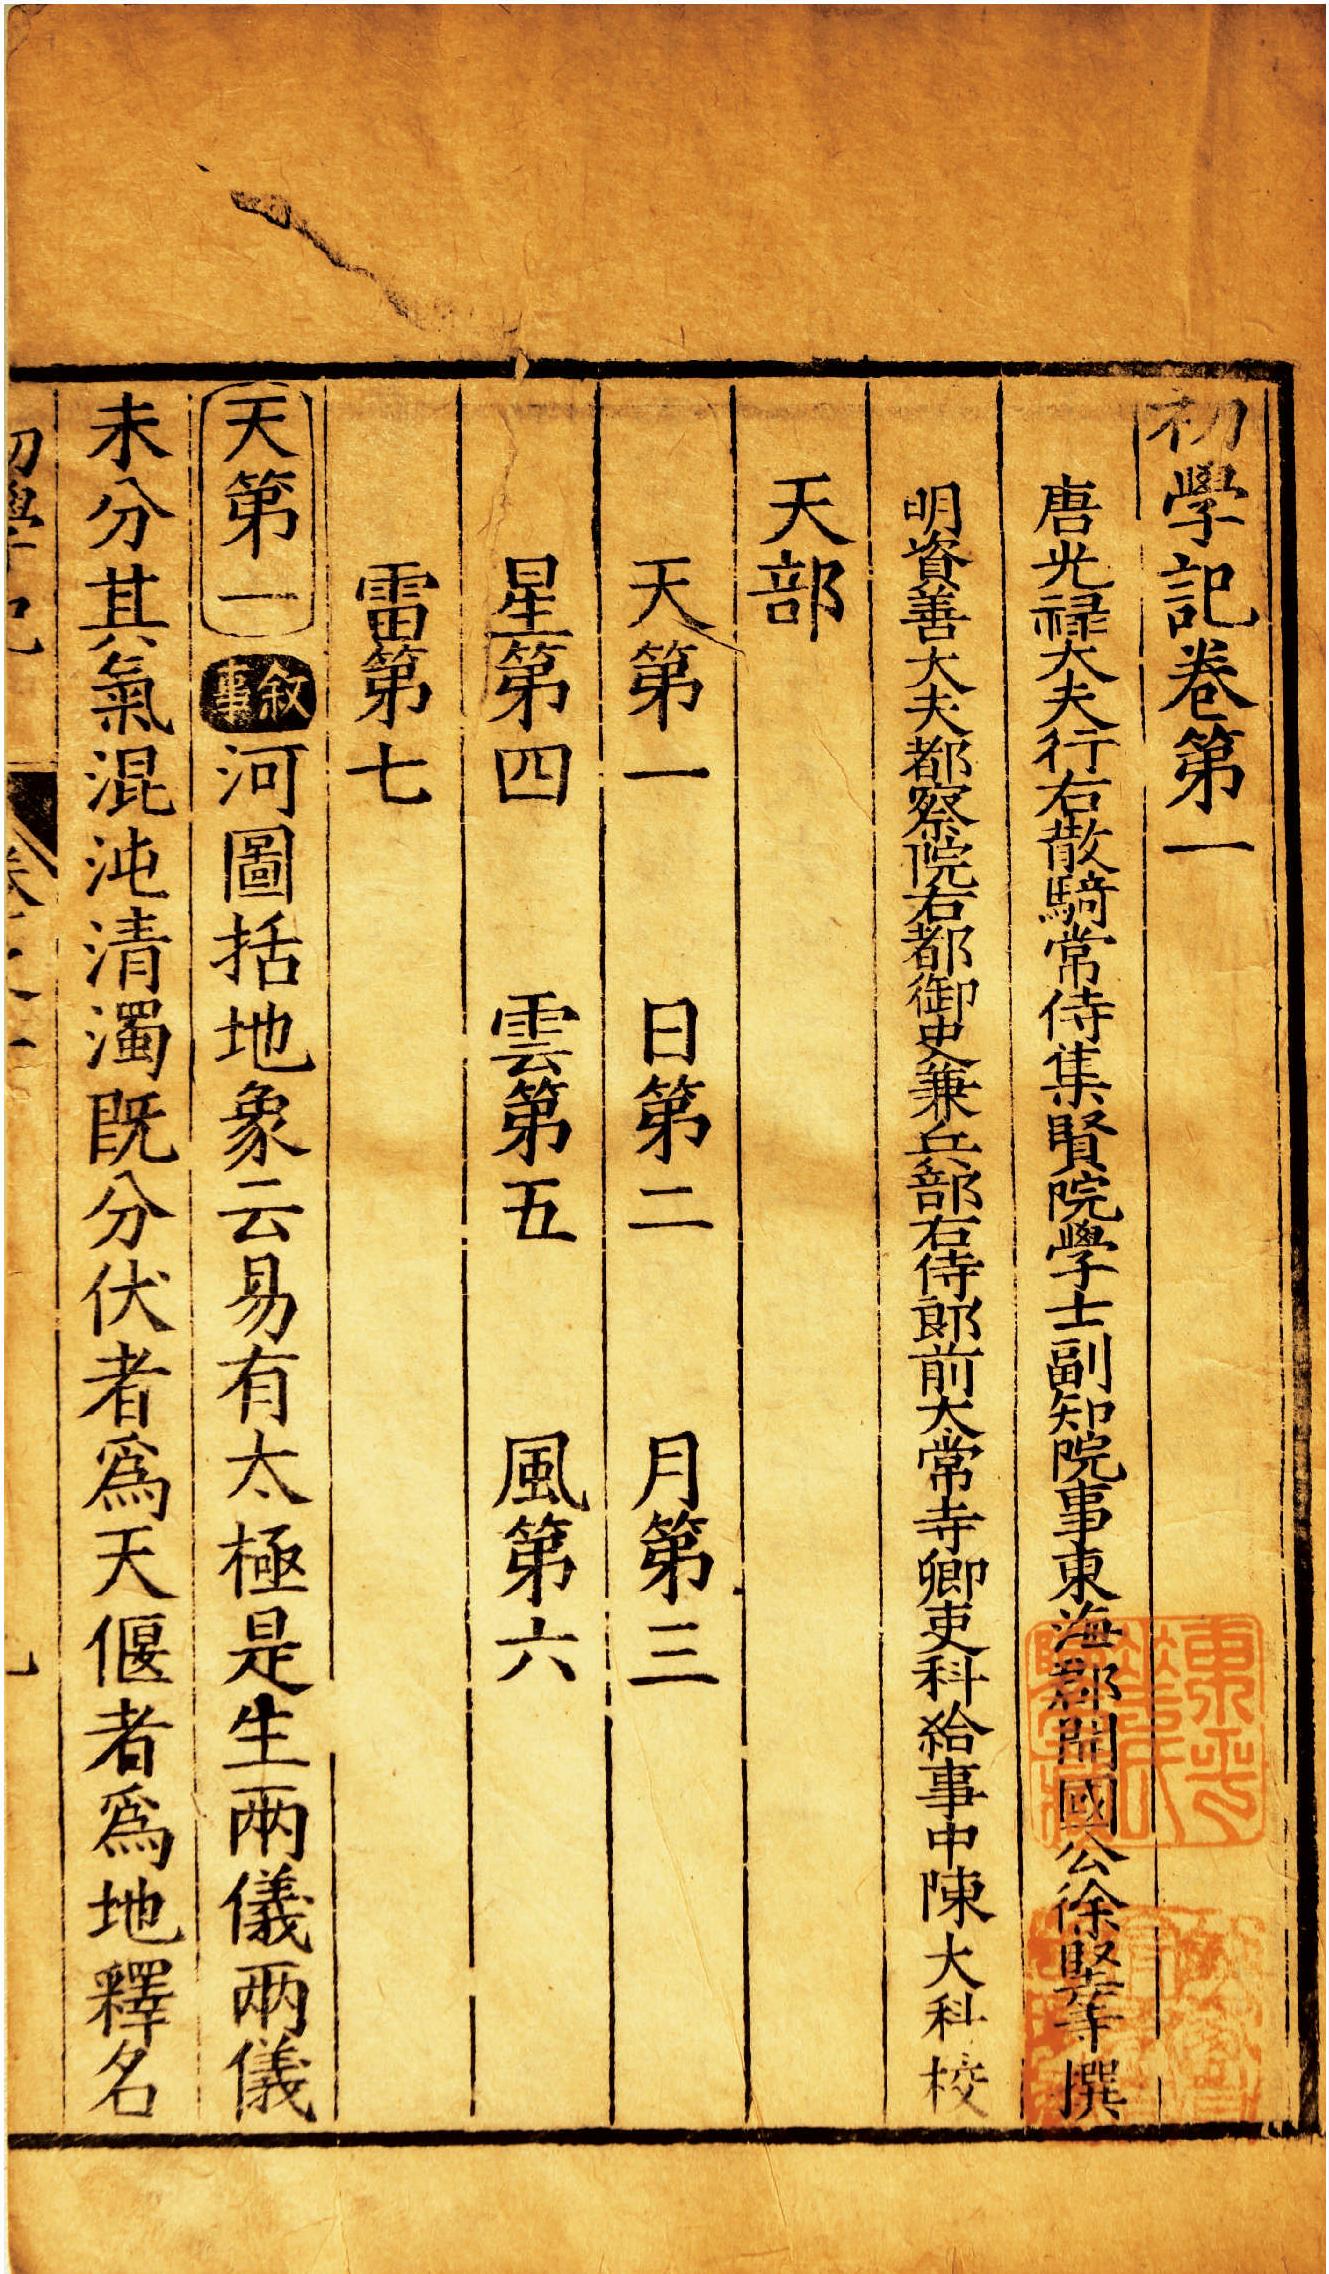 初學記卷第一
唐光禄大夫行右散騎常侍集賢院學士副知院事東海郡開國公徐堅等撰
明資善大夫都察院右都御史兼兵部右侍郎前太常寺卿吏科給事中陳大科校
天部
天第一 日第二 月第三
星第四 雲第五 風第六
雷第七
天第一 叙事 河圖括地象云易有太極是生兩儀兩儀
未分其氣混沌清濁既分伏者為天偃者為地釋名
初學記 卷之一